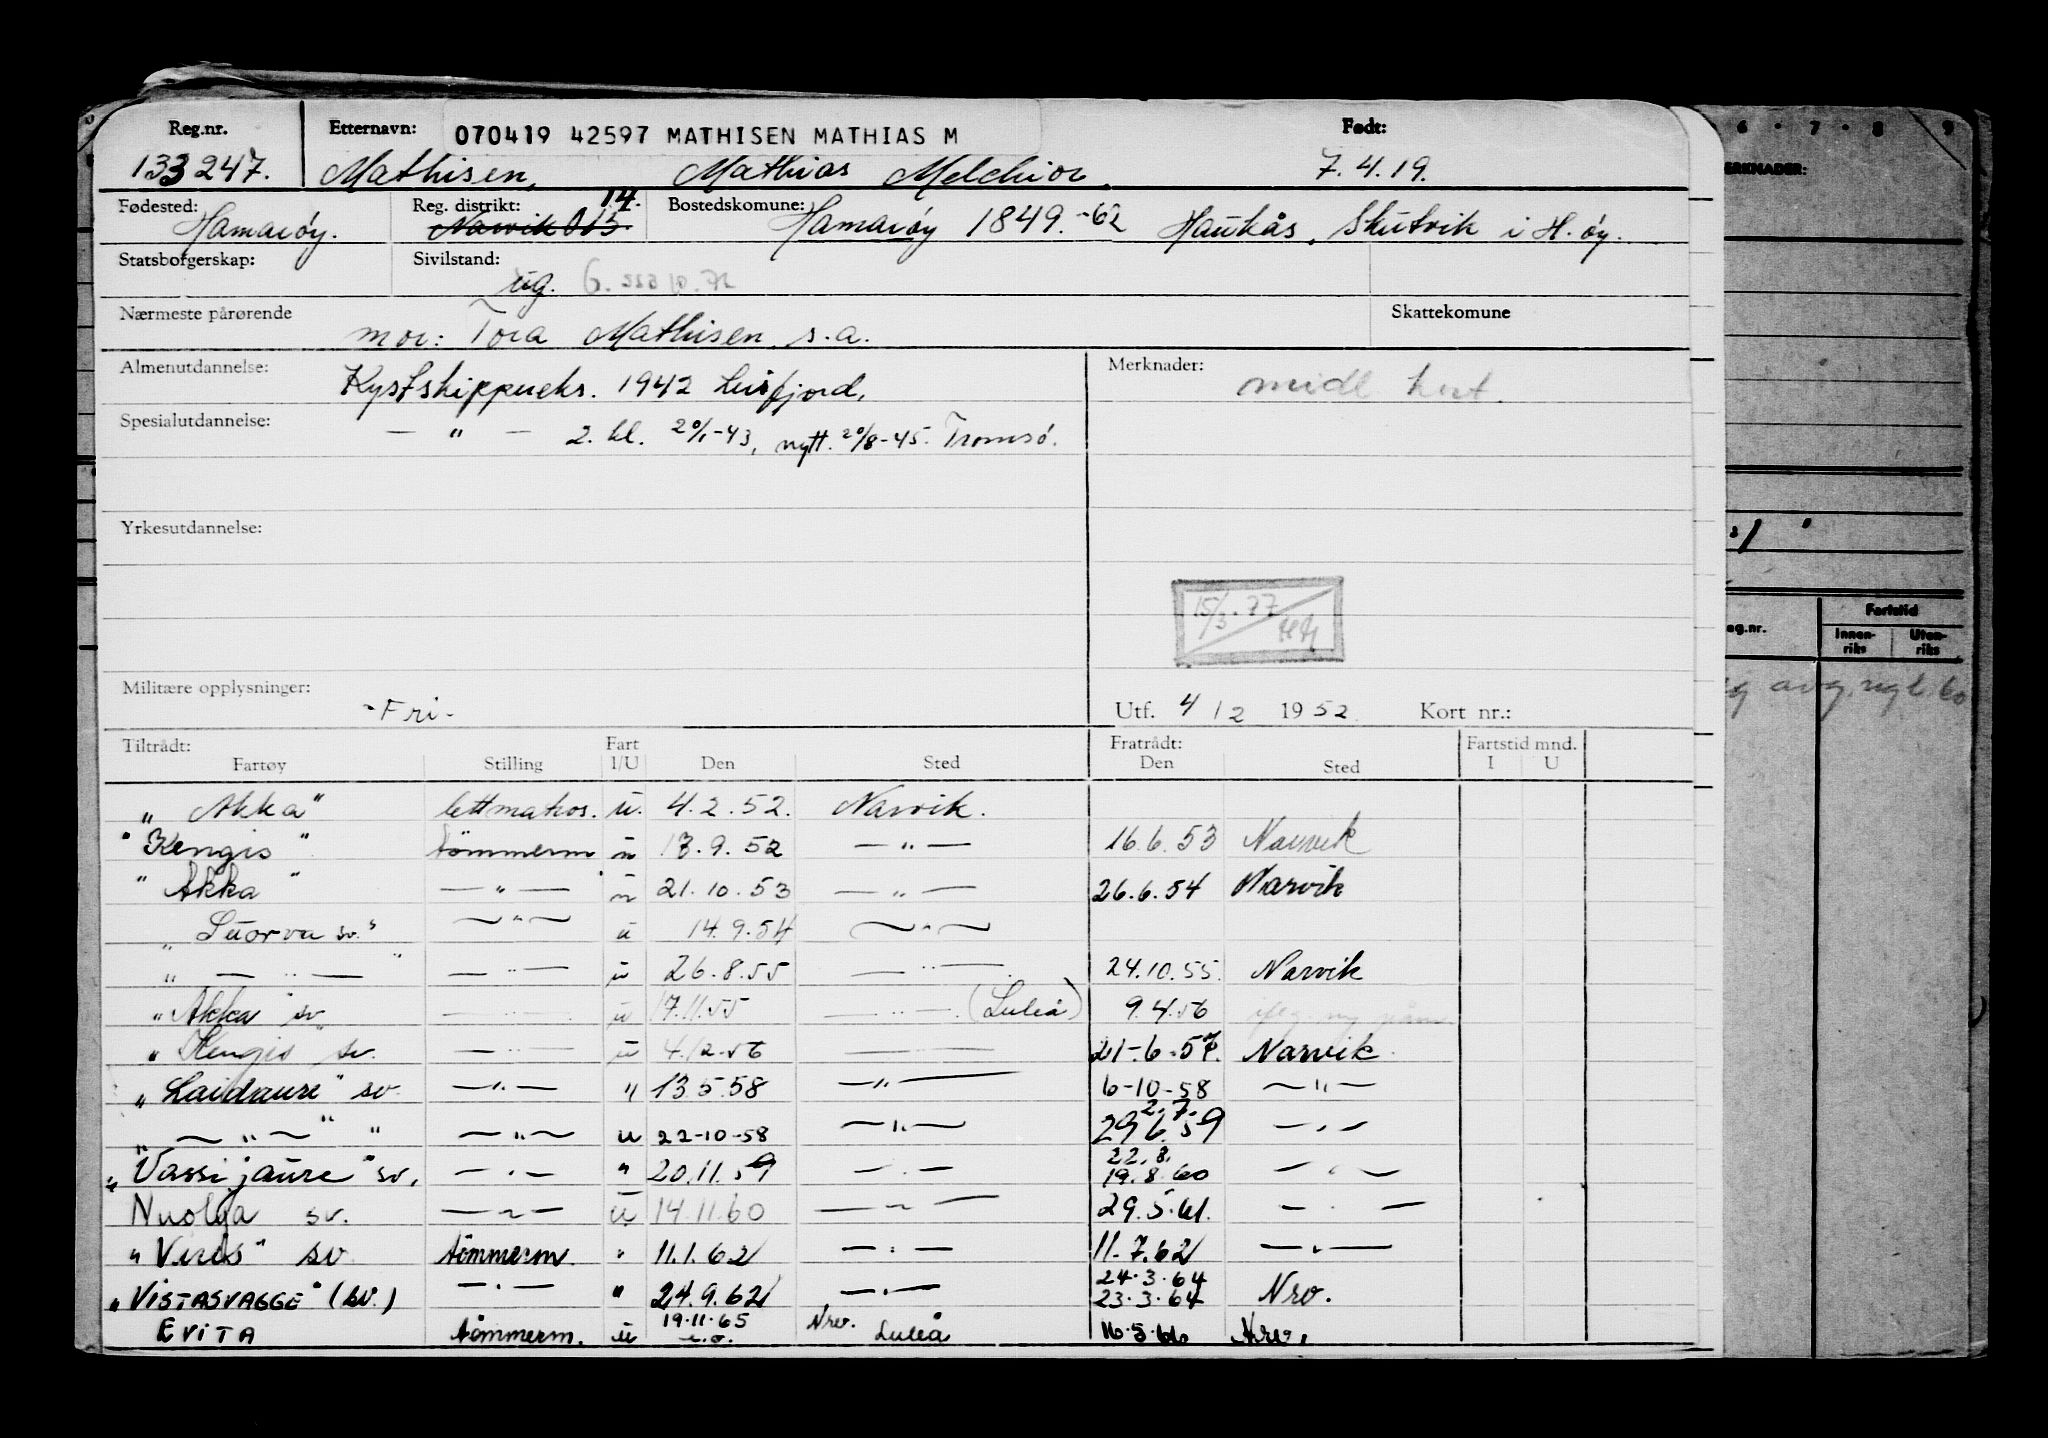 Reg.nr. Etternavn: 070419 42597 MATHISEN MATHIAS M Født:
133247. Mathisen, Mathias Melchior. 7.4.19.
Fødested: Reg. distrikt: 14. Bostedskomune:
Hamarøy. Narvik 013. Hamarøy 1849.-62 Haukås, Skutvik i H.øy.
Statsborgerskap: Sivilstand:
ug. G.
Nærmeste pårørende Skattekomune
mor: Tora Mathisen s.a.
Almenutdannelse: Merknader:
Kystskippereks. 1942 midl kort.
Spesialutdannelse:
— " — 2. kl. 20/1-43, nytt. 20/8-45. Tromsø.
Yrkesutdannelse:
15/3.77
Militære opplysninger:
-Fri- Utf. 4/2 1952 Kort nr.:
Tiltrådt: Fart Fratrådt: Fartstid mnd.
Fartøy Stilling I/U Den Sted Den Sted I U
"Akka" lettmatros. u. 4.2.52. Narvik.
"Kengis" tömmerm u 13.9.52 — " — 16.6.53 Narvik
"Akka" — " — u 21.10.53 — " — 26.6.54 Narvik
"Suorva sv." — " — u 14.9.54 — " —
" — " — " — " — u 26.8.55 — " — 24.10.55. Narvik
"Akka" sv — " — u 17.11.55 — " — (Luleå) 9.4.56
"Kengis" sv. — " — u 4.12.56 — " — 21-6-57. Narvik.
"Laidaure" sv. — " — " 13.5.58 — " — 6-10-58 — " —
2.7.
" — " — " " — " — u 22-10-58 — " — 29.6.59 — " —
22.8.
"Vassijaure" sv. — " — " 20.11.59 — " — 19.8.60 — " —
Nuolja sv. — " — u 14.11.60 — " — 29.5.61. — " —
"Vires" sv tömmerm. " 11.1.62 — " — 11.7.62 — " —
24.3.64
"VISTASVAGGE" (sv.) — " — " 24.9.62 — " — 23.3.64 Nrv.
19.11.65 Nrv.
EVITA tömmerm. u Luleå 16.5.66 Nrv.
6 . 7 . 8 9
ERKNADER:
Fartstid
eg.nr. Innen-riks Uten-riks
avg. regl. 60